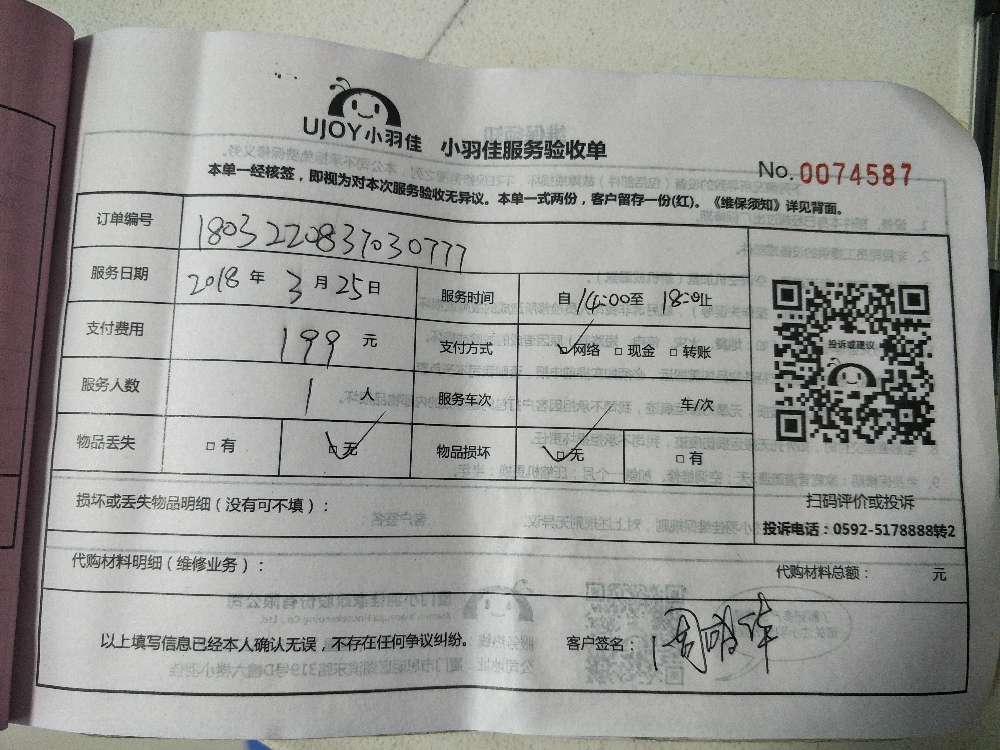 UJOY小羽佳 小羽佳服务验收单
No.0074587
本单一经核签，即视为对本次服务验收无异议。本单一式两份，客户留存一份(红)。《维保须知》详见背面。
订单编号 1803220837030777
服务日期 2018年3月25日 服务时间 自14:00至18:00止
支付费用 199元 支付方式 网络 现金 转账
服务人数 1人 服务车次 车/次
物品丢失 有 无 物品损坏 无 有
投诉或建议
扫码评价或投诉
投诉电话：0592-5178888转2
损坏或丢失物品明细（没有可不填）：
代购材料明细（维修业务）： 代购材料总额： 元
以上填写信息已经本人确认无误，不存在任何争议纠纷。 客户签名：